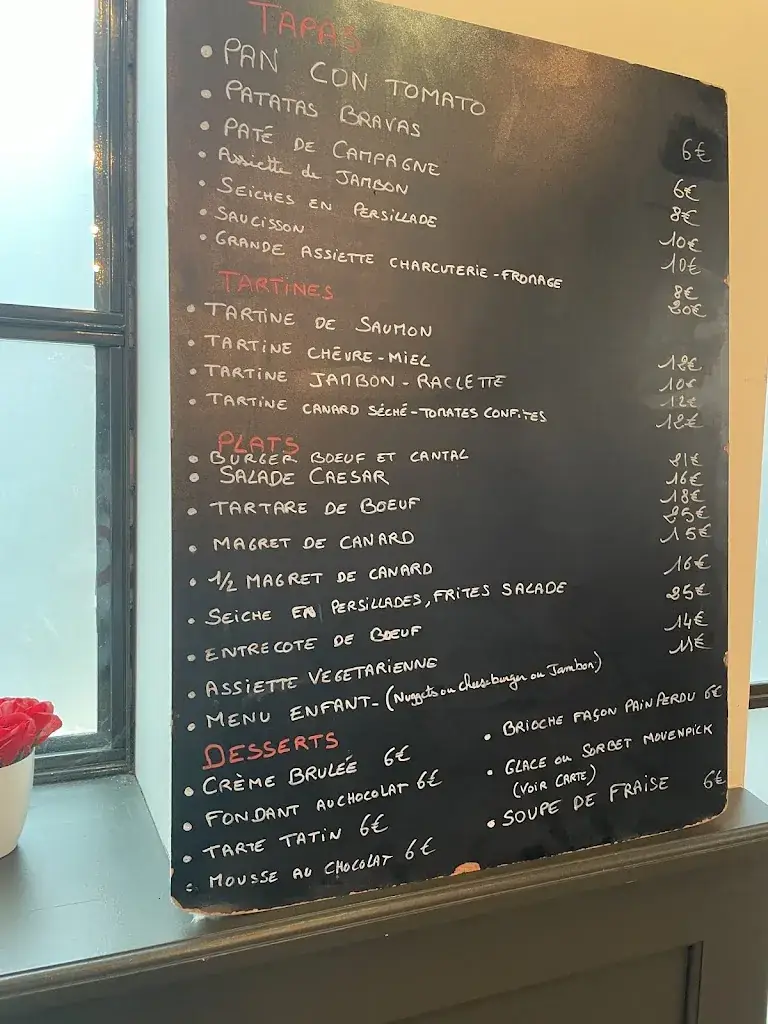 TAPAS
• PAN CON TOMATO 6€
• PATATAS BRAVAS 6€
• PATÉ DE CAMPAGNE 8€
• Assiette de JAMBON 10€
• SEICHES EN PERSILLADE 10€
• SAUCISSON 8€
• GRANDE ASSIETTE CHARCUTERIE - FROMAGE 20€
TARTINES
• TARTINE DE SAUMON 12€
• TARTINE CHÈVRE - MIEL 10€
• TARTINE JAMBON - RACLETTE 12€
• TARTINE CANARD SÉCHÉ - TOMATES CONFITES 12€
PLATS
• BURGER BOEUF ET CANTAL 21€
• SALADE CAESAR 16€
• TARTARE DE BOEUF 18€
• MAGRET DE CANARD 25€
• 1/2 MAGRET DE CANARD 15€
• SEICHE EN PERSILLADES, FRITES SALADE 16€
• ENTRECOTE DE BOEUF 25€
• ASSIETTE VEGETARIENNE 14€
• MENU ENFANT - (Nuggets ou cheeseburger ou Jambon) 11€
DESSERTS
• CRÈME BRULÉE 6€
• FONDANT AU CHOCOLAT 6€
• TARTE TATIN 6€
• MOUSSE AU CHOCOLAT 6€
• BRIOCHE FAÇON PAIN PERDU 6€
• GLACE OU SORBET MOVENPICK
(VOIR CARTE)
• SOUPE DE FRAISE 6€